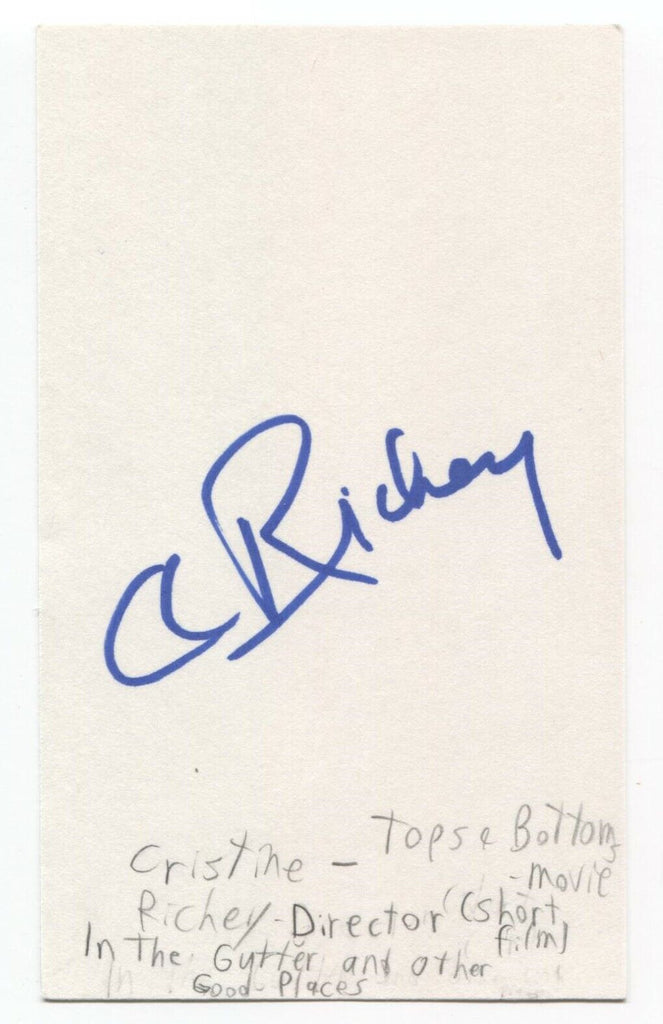 C Richey
Cristine - Tops & Bottoms
- movie
Richey - Director (short
film)
In The Gutter and other
Good Places